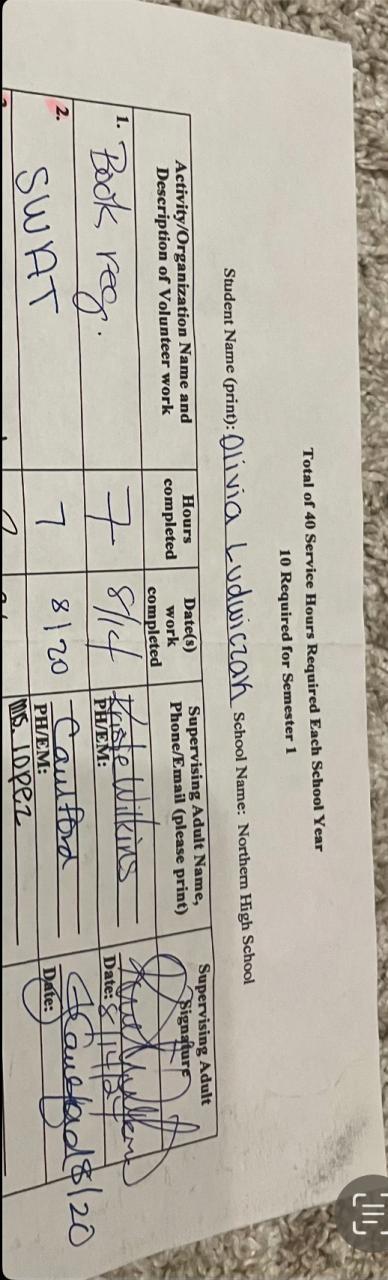 Total of 40 Service Hours Required Each School Year
10 Required for Semester 1
Student Name (print): Olivia Ludwiczak School Name: Northern High School
Activity/Organization Name and Description of Volunteer work
Hours completed
Date(s) work completed
Supervising Adult Name, Phone/Email (please print)
Supervising Adult Signature
1. Book reg. 7 8/14 Kristie Wilkins
PH/EM: Date: 8/14/24
2. SWAT 7 8/20 Caulford
PH/EM: Date: 8/20
Ms. Lopez